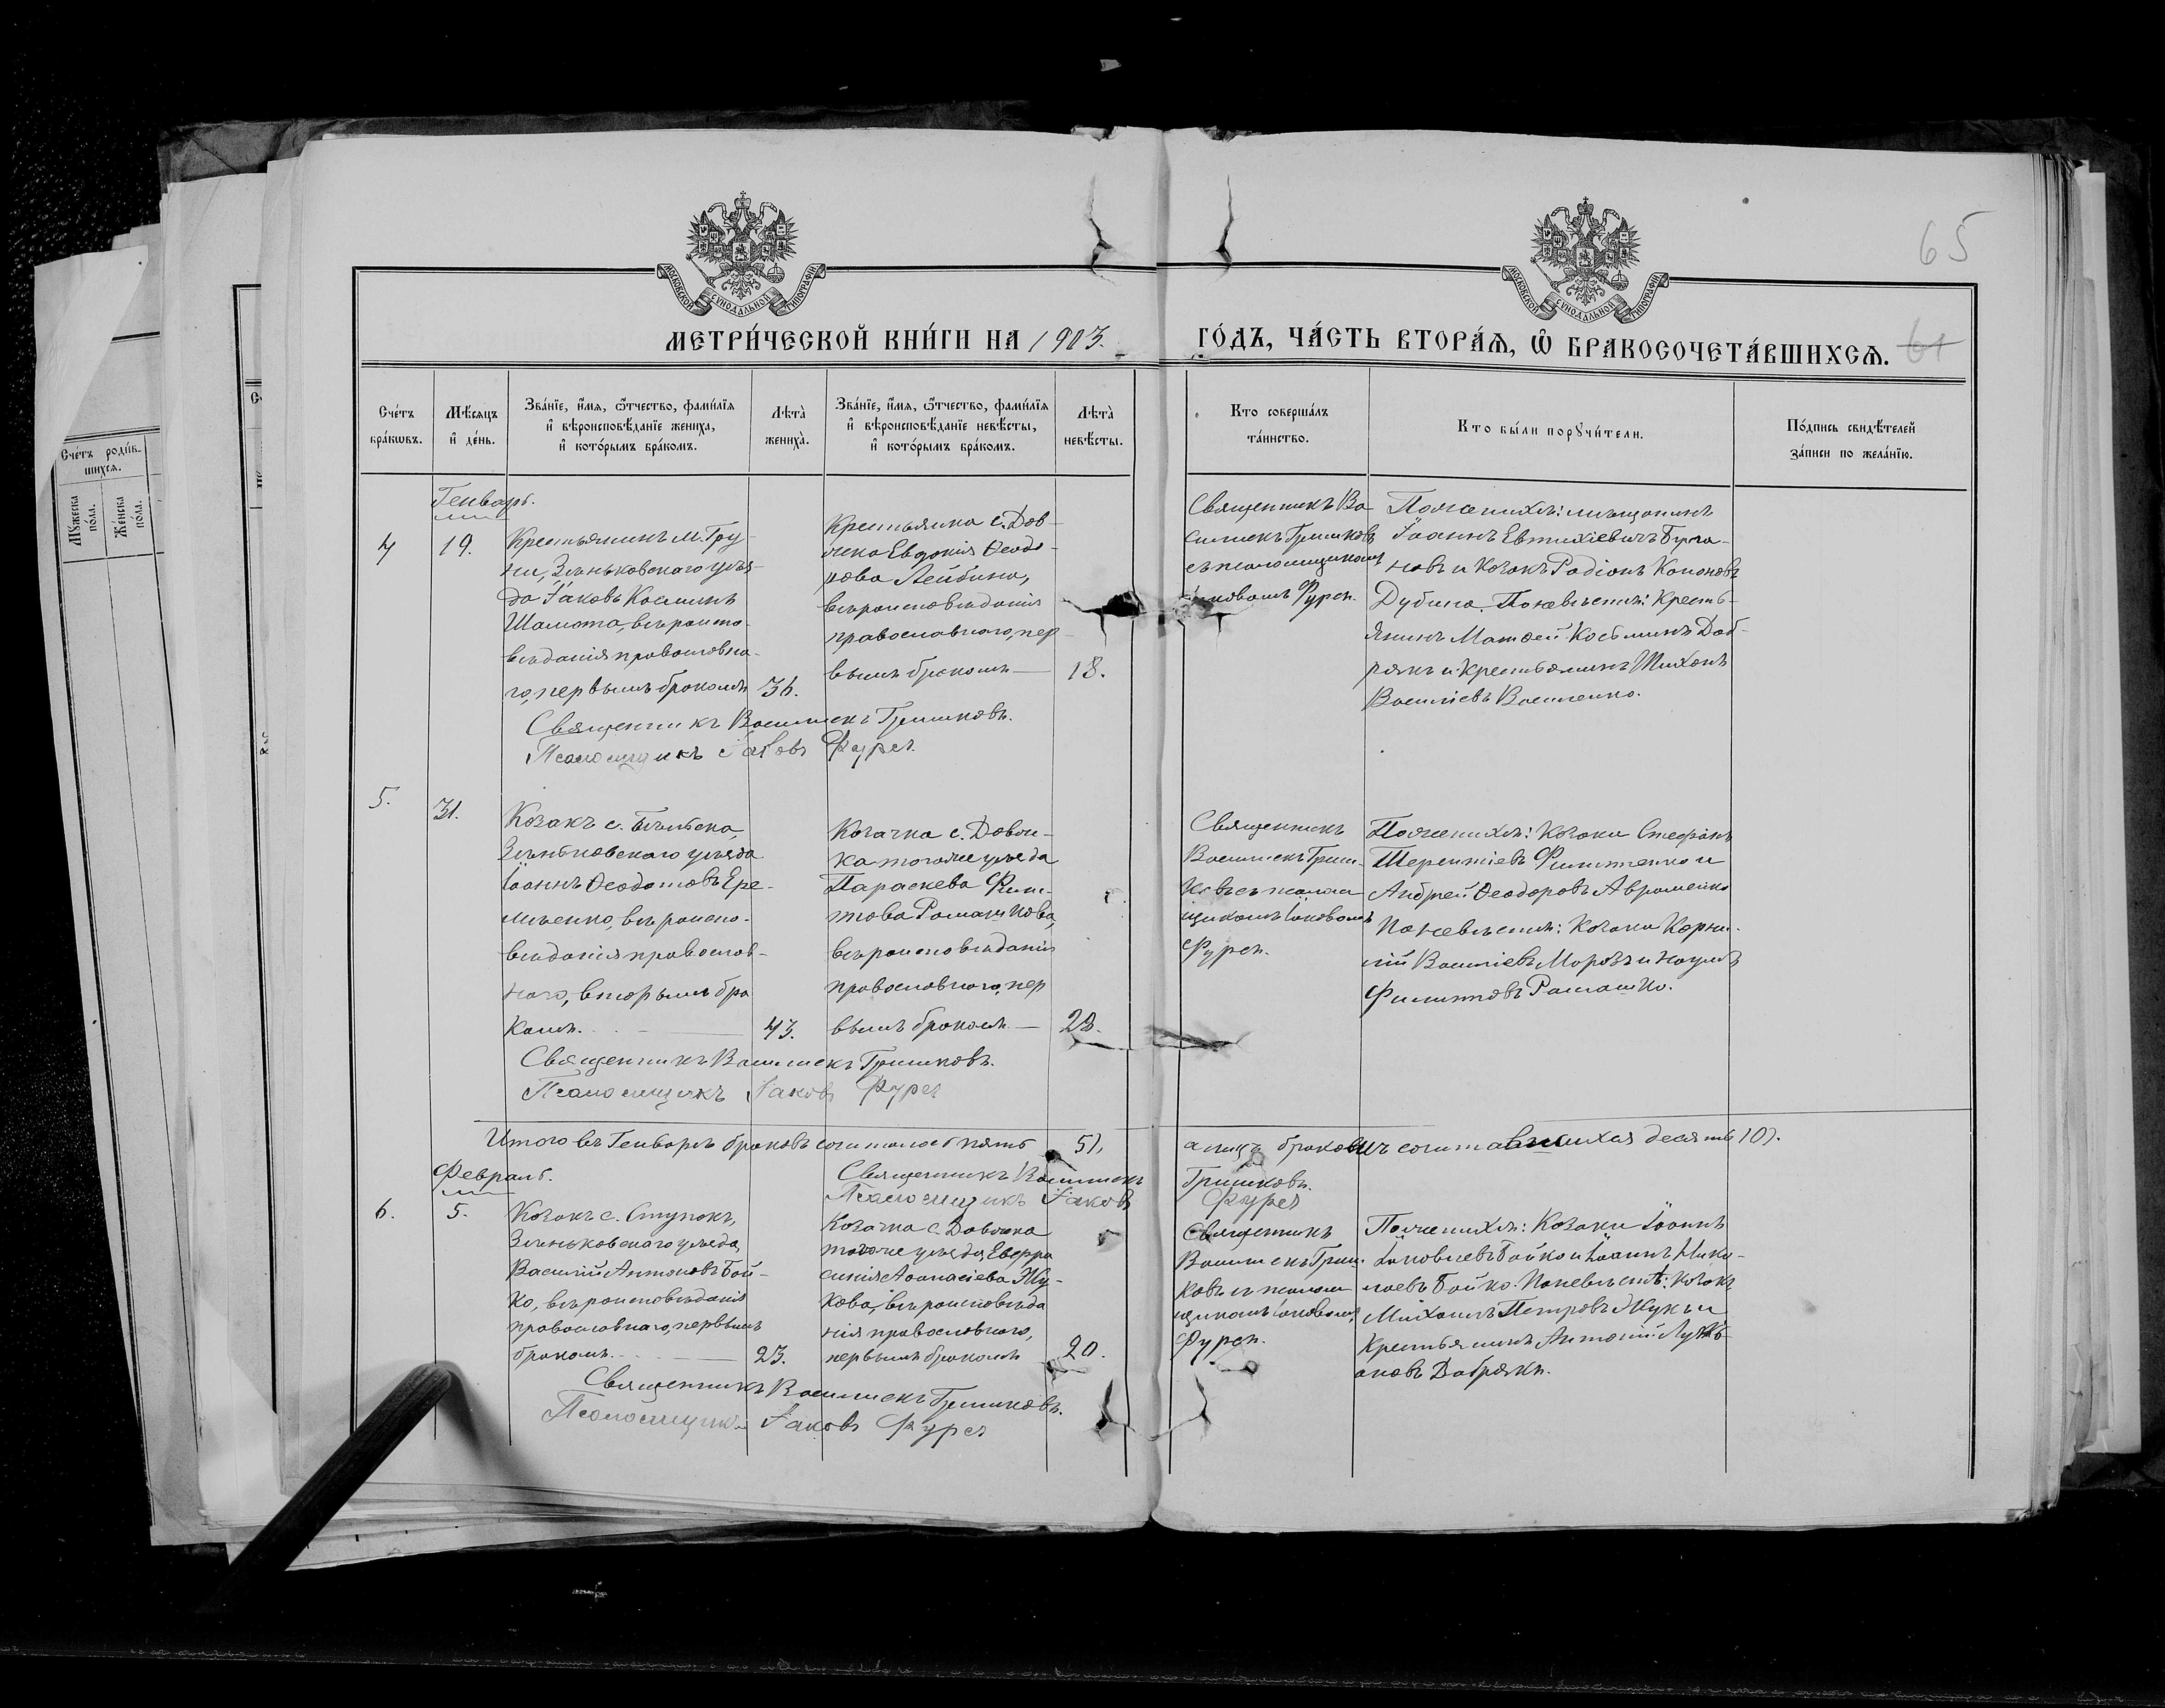 65
МОСКОВСКОЙ СУНОДАЛЬНОЙ ТИПОГРАФІИ
МОСКОВСКОЙ СУНОДАЛЬНОЙ ТИПОГРАФІИ
МЕТРИ́ЧЕСКОЙ КНИ́ГИ НА 1903. ГО́ДЪ, ЧА́СТЬ ВТОРА́Ѧ, Ѡ҆ БРАКОСОЧЕТА́ВШИХСѦ.
61
Сче́тъ бра́кѡвъ.
Мѣ́сяцъ и҆ де́нь.
Зва́нїе, и҆́мѧ, ѻ҆́тчество, фами́лїѧ и҆ вѣроисповѣ́данїе жениха̀, и҆ кото́рымъ бра́комъ.
Лѣ́та̀ жениха̀.
Зва́нїе, и҆́мѧ, ѻ҆́тчество, фами́лїѧ и҆ вѣроисповѣ́данїе невѣ́сты, и҆ кото́рымъ бра́комъ.
Лѣ́та̀ невѣ́сты.
Кто соверша́лъ та́инство.
Кто бы́ли порꙋчи́тели.
По́дпись свидѣ́телей за́писи по жела́нїю.
Сче́тъ роди́в-
шихсѧ.
Мꙋ́жеска по́ла.
Же́нска по́ла.
Генварь.
4
19.
Крестьянинъ м. Гру-
ни, Зѣньковскаго уѣз-
да Іаковъ Косминъ
Шамота, вѣроиспо-
вѣданія православна-
го, первымъ бракомъ
36.
Крестьянка с. Дов-
жека Евдокія Ѳеодо-
рова Лейбина,
вѣроисповѣданія
православнаго, пер-
вымъ бракомъ —
18.
Священникъ Ва-
силискъ Гришковъ
съ псаломщикомъ
Іаковомъ Фурса.
По женихѣ: мѣщанинъ
Іоаннъ Евтихіевичъ
новъ и Козакъ Радіонъ Кононовъ
Дубина. По невѣстѣ: Кресть-
янинъ Матѳей Косьминъ Доб-
рякъ и крестьянинъ Тихонъ
Василіевъ Василенко.
Священникъ Василискъ Гришковъ.
Псаломщикъ Іаковъ Фурса
5.
31.
Козакъ с. Бѣльска,
Зѣньковскаго уѣзда
Іоаннъ Ѳеодотовъ Ере-
мѣенко, вѣроиспо-
вѣданія православ-
наго, вторымъ бра
комъ. —
43.
Козачка с. Довжи-
ка тогоже уѣзда
Параскева Филип-
пова Ромашкова,
вѣроисповѣданія
православнаго, пер
вымъ бракомъ —
23.
Священникъ
Василискъ Гриш-
ковъ съ псалом
щикомъ Іаковомъ
Фурса.
По женихѣ: Козаки Стефанъ
Терентіевъ Филипенко и
Андрей Ѳеодоровъ Авраменко
По невѣстѣ: Козаки Корни-
лій Василіевъ Морозъ и Наумъ
Филипповъ Ромашко.
Священникъ Василискъ Гришковъ.
Псаломщикъ Іаковъ Фурса
Итого въ Генварѣ браковъ состоялось пять 5), а лицъ бракомъ сочитавшихся десять 10).
Священникъ Василискъ Гришковъ.
Псаломщикъ Іаковъ Фурса
Февраль.
6.
5.
Козакъ с. Ступокъ,
Зѣньковскаго уѣзда,
Василій Антоновъ Бой-
ко, вѣроисповѣданія
православнаго, первымъ
бракомъ. —
23.
Козачка с. Довжика
тогоже уѣзда Евфро
синія Аѳанасіева Жу-
кова, вѣроисповѣда
нія православнаго,
первымъ бракомъ
20.
Священникъ
Василискъ Гриш-
ковъ съ псалом
щикомъ Іаковомъ
Фурса.
По женихѣ: Козаки Іоаннъ
Іаковлевъ Бойко и Іоаннъ Нико-
лаевъ Бойко. По невѣстѣ: Козакъ
Михаилъ Петровъ Жукъ и
Крестьянинъ Антоній Лукь-
ановъ Добрякъ.
Священникъ Василискъ Гришковъ.
Псаломщикъ Іаковъ Фурса